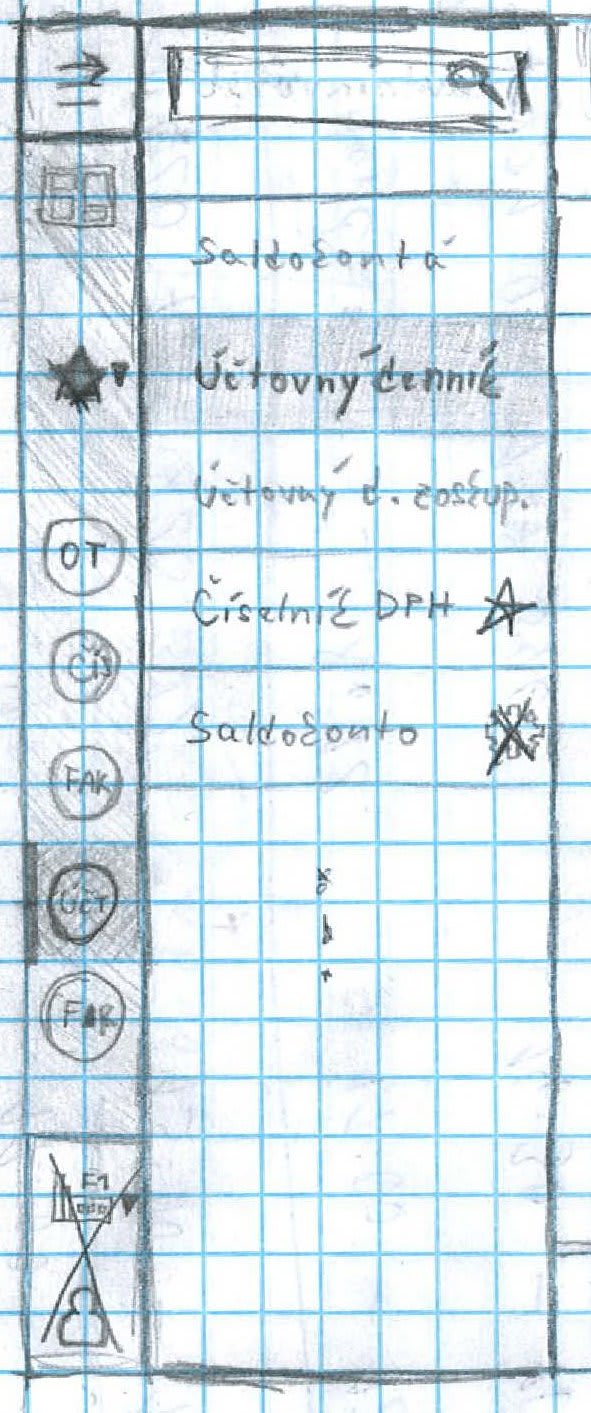 Saldokontá
Účtovný denník
Účtovný d. zoskup.
OT
Číselník DPH
ČIS
FAK
Saldokonto
ÚČT
FAR
F1